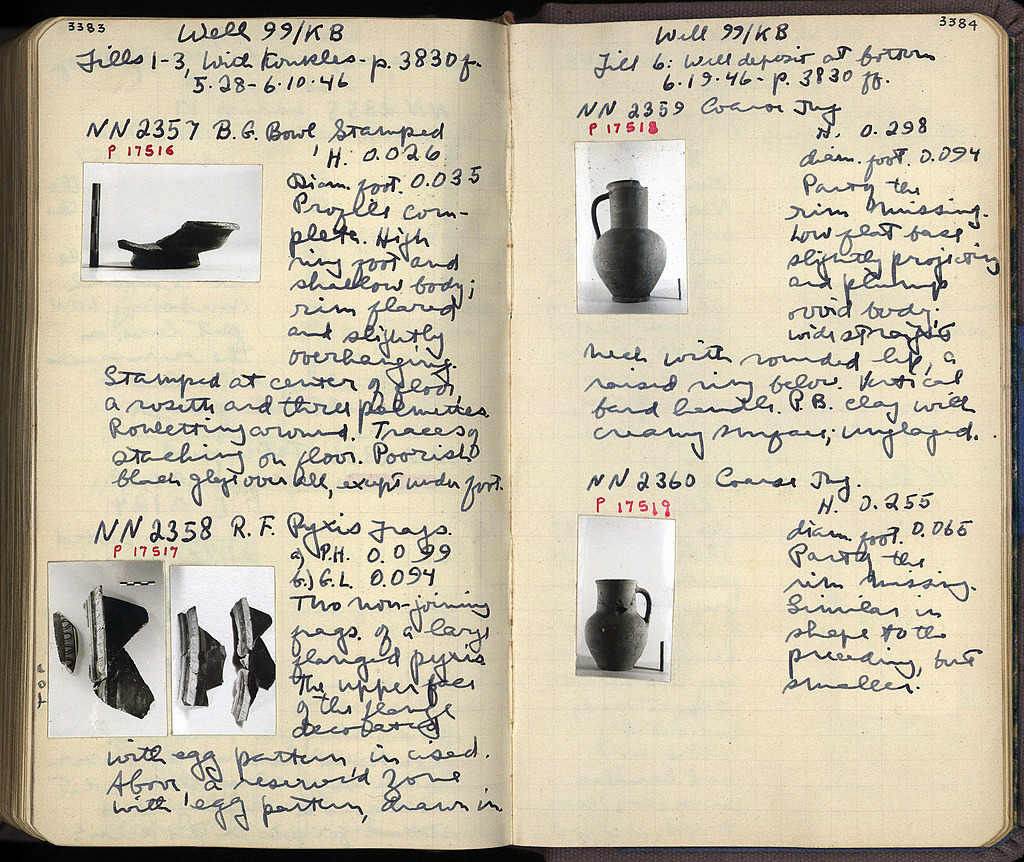 3383
Well 99/KB
Fills 1-3, with Konkles - p. 3830 f.
5.28-6.10.46
NN 2357 B.G. Bowl Stamped
P 17516
H. 0.026
Diam. foot. 0.035
Profile com-
plete. High
ring foot and
shallow body;
rim flared
and slightly
overhanging.
Stamped at center of floor,
a rosette and three palmettes.
Rouletting around. Traces of
stacking on floor. Poorish
black glaze over all, except under foot.
NN 2358 R.F. Pyxis Frags.
P 17517
a) P.H. 0.099
b.) G.L. 0.094
Two non-joining
frags. of a large
flanged pyxis
The upper face
of the flange
decorated
with egg pattern incised.
Above, a reserved zone
with egg pattern, drawn in
3384
Well 99/KB
Fill 6: Well deposit at bottom
6.19.46 - p. 3830 ff.
NN 2359 Coarse Jug
P 17518
H. 0.298
diam. foot. 0.094
Part of the
rim missing.
Low flat base
slightly projecting
and plump
ovoid body;
wide straight
neck with rounded lip, a
raised ring below. Vertical
band handle. P.B. clay with
creamy surface; unglazed.
NN 2360 Coarse Jug.
P 17519
H. 0.255
diam. foot. 0.065
Part of the
rim missing.
Similar in
shape to the
preceding, but
smaller.